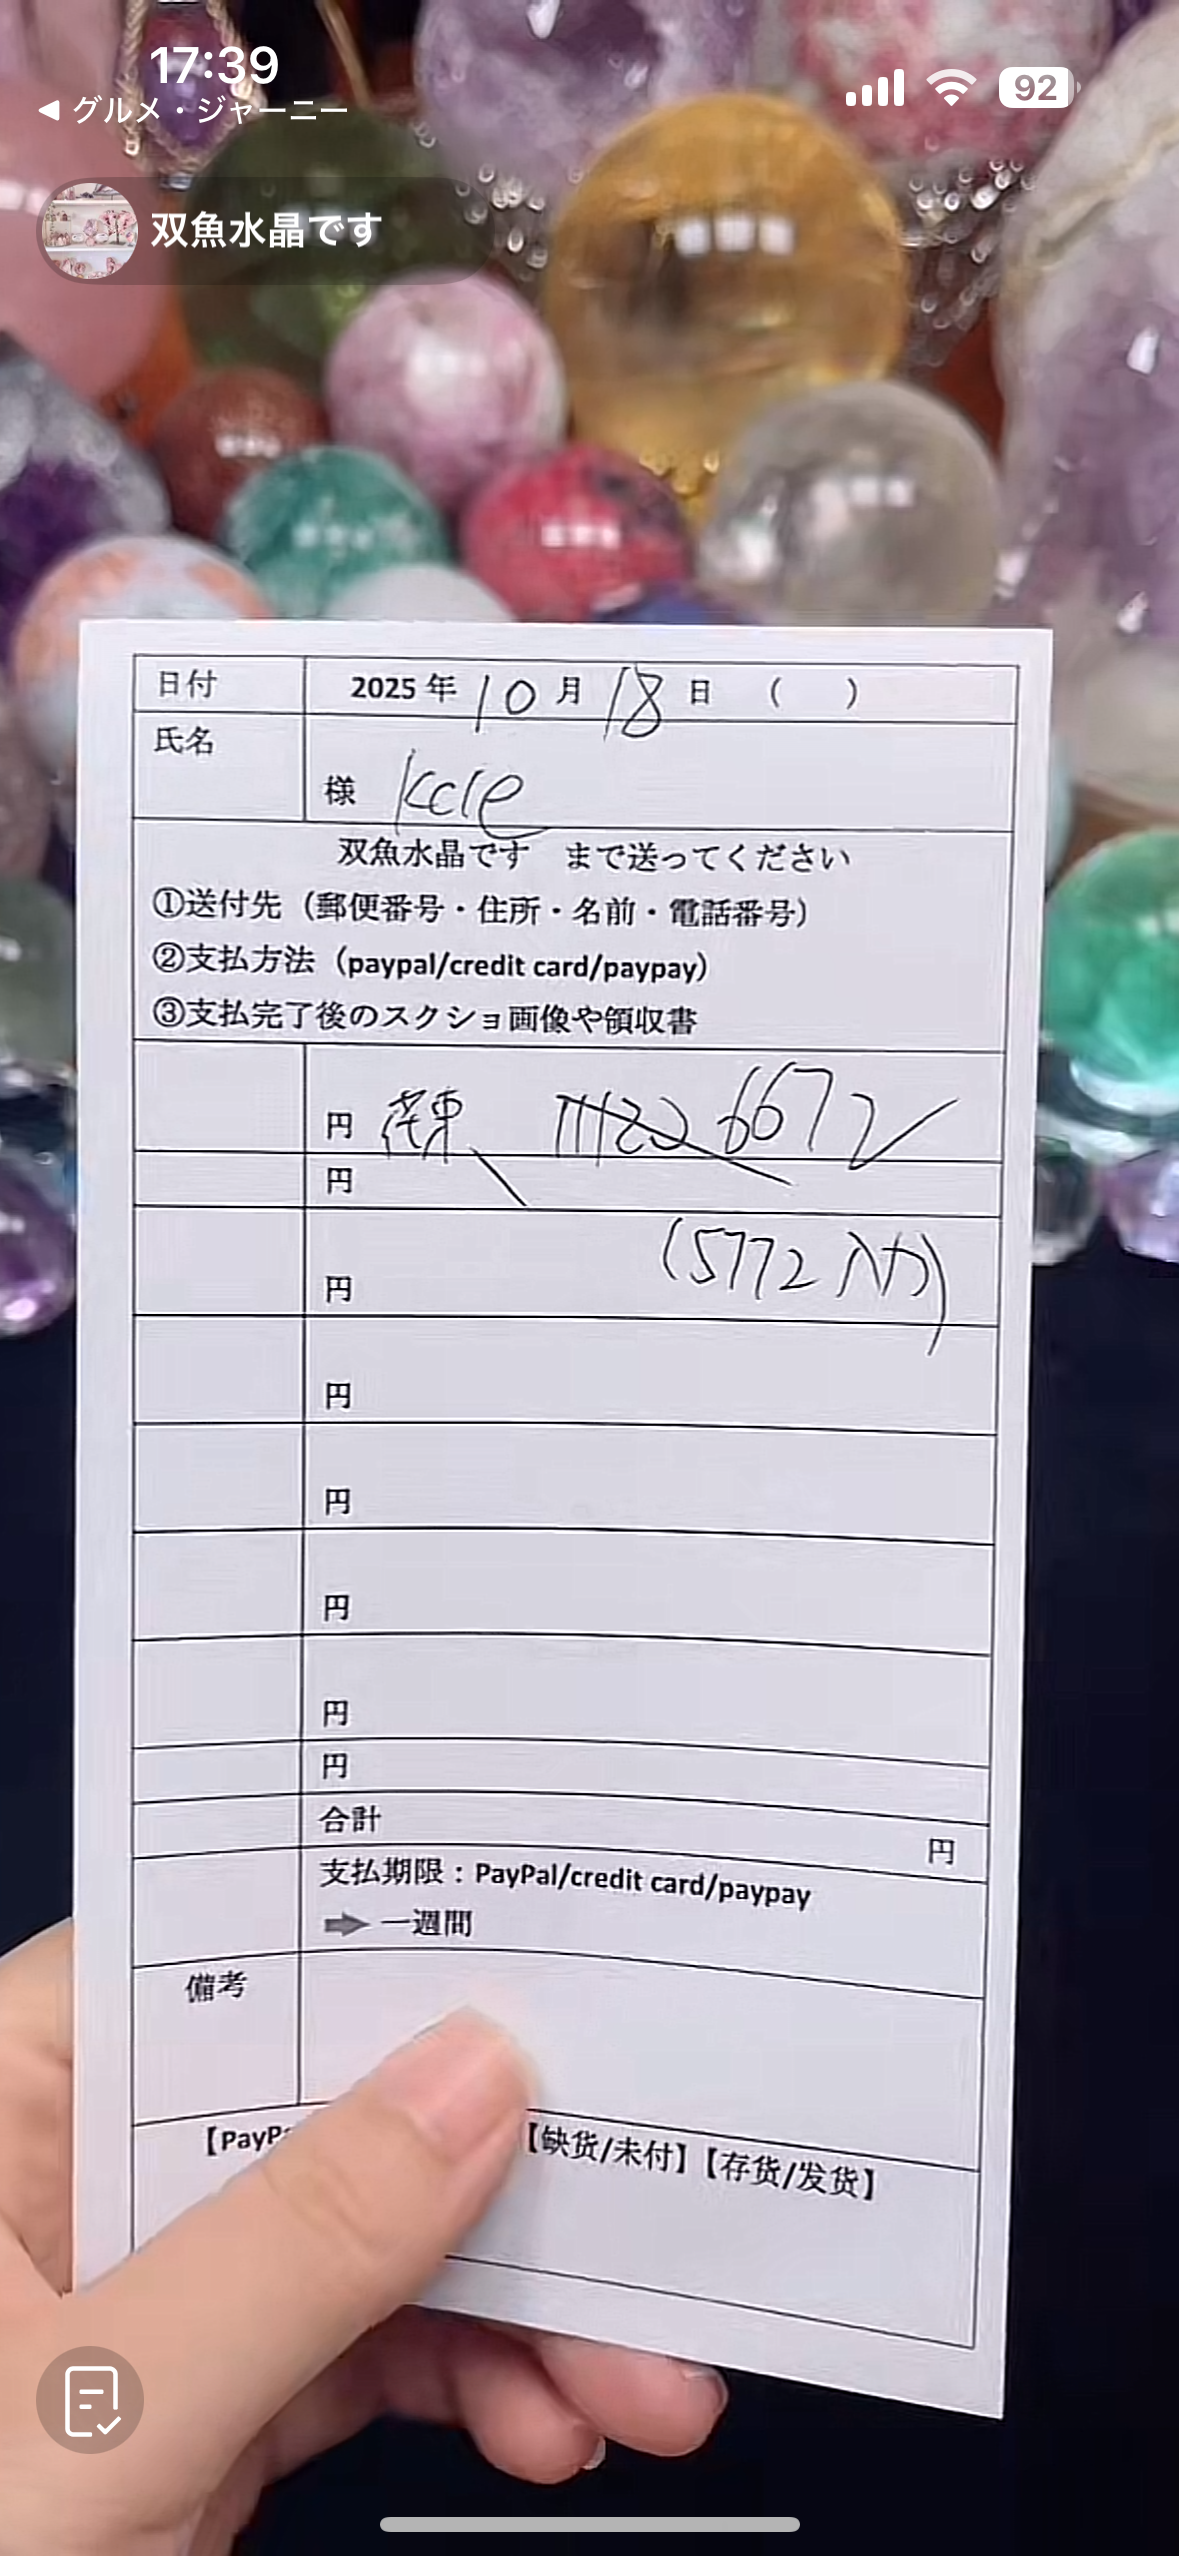 17:39
92
グルメ・ジャーニー
双魚水晶です
日付 2025 年 10 月 18 日 ( )
氏名
様 kcle
双魚水晶です まで送ってください
①送付先（郵便番号・住所・名前・電話番号）
②支払方法（paypal/credit card/paypay）
③支払完了後のスクショ画像や領収書
円 6672
円
円 (5772
円
円
円
円
円
合計 円
支払期限：PayPal/credit card/paypay
➡ 一週間
備考
【PayP 【缺货/未付】【存货/发货】